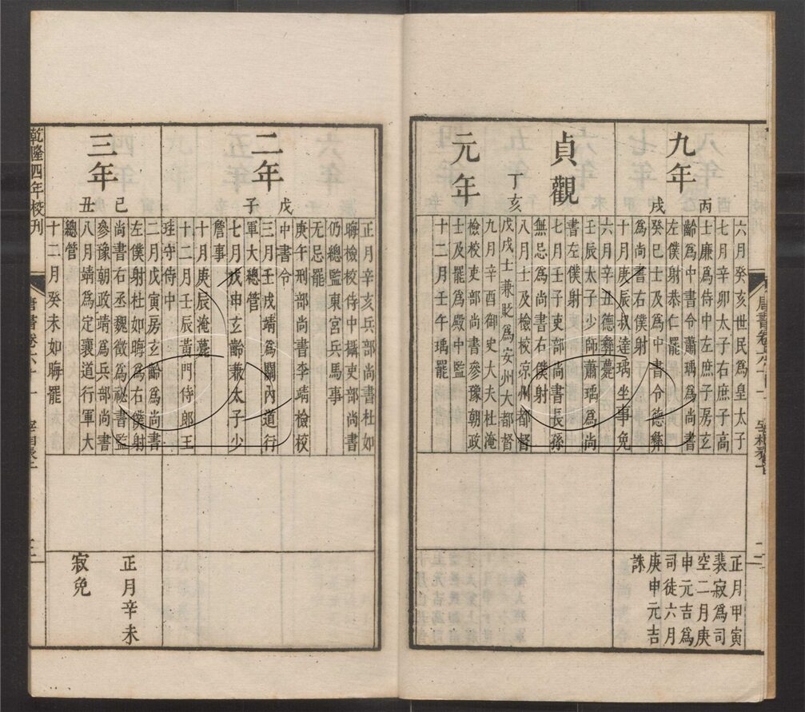 九年
丙戌
六月癸亥世民爲皇太子
七月辛卯太子右庶子高
士廉爲侍中左庶子房玄
齡爲中書令蕭瑀爲尚書
左僕射恭仁罷
癸巳士及爲中書令德彝
爲尚書右僕射
十月庚辰叔達瑀坐事免
正月甲寅
裴寂爲司
空二月庚
申元吉爲
司徒六月
庚申元吉
誅
貞觀
元年
丁亥
六月辛丑德彝薨
壬辰太子少師蕭瑀爲尚
書左僕射
七月壬子吏部尚書長孫
無忌爲尚書右僕射
八月士及檢校涼州都督
戊戌士兼貶爲安州大都督
九月辛酉御史大夫杜淹
檢校吏部尚書參豫朝政
士及罷爲殿中監
十二月壬午瑀罷
二年
戊子
正月辛亥兵部尚書杜如
晦檢校侍中攝吏部尚書
仍總監東宮兵馬事
无忌罷
庚午刑部尚書李靖檢校
中書令
三月壬戌靖爲關內道行
軍大總管
七月戊申玄齡兼太子少
詹事
十月庚辰淹薨
十二月壬辰黃門侍郎王
珪守侍中
三年
己丑
二月戊寅房玄齡爲尚書
左僕射杜如晦爲右僕射
尚書右丞魏徵爲祕書監
參豫朝政靖爲兵部尚書
八月靖爲定襄道行軍大
總管
十二月癸未如晦罷
正月辛未
寂免
乾隆四年校刊
唐書卷六十一